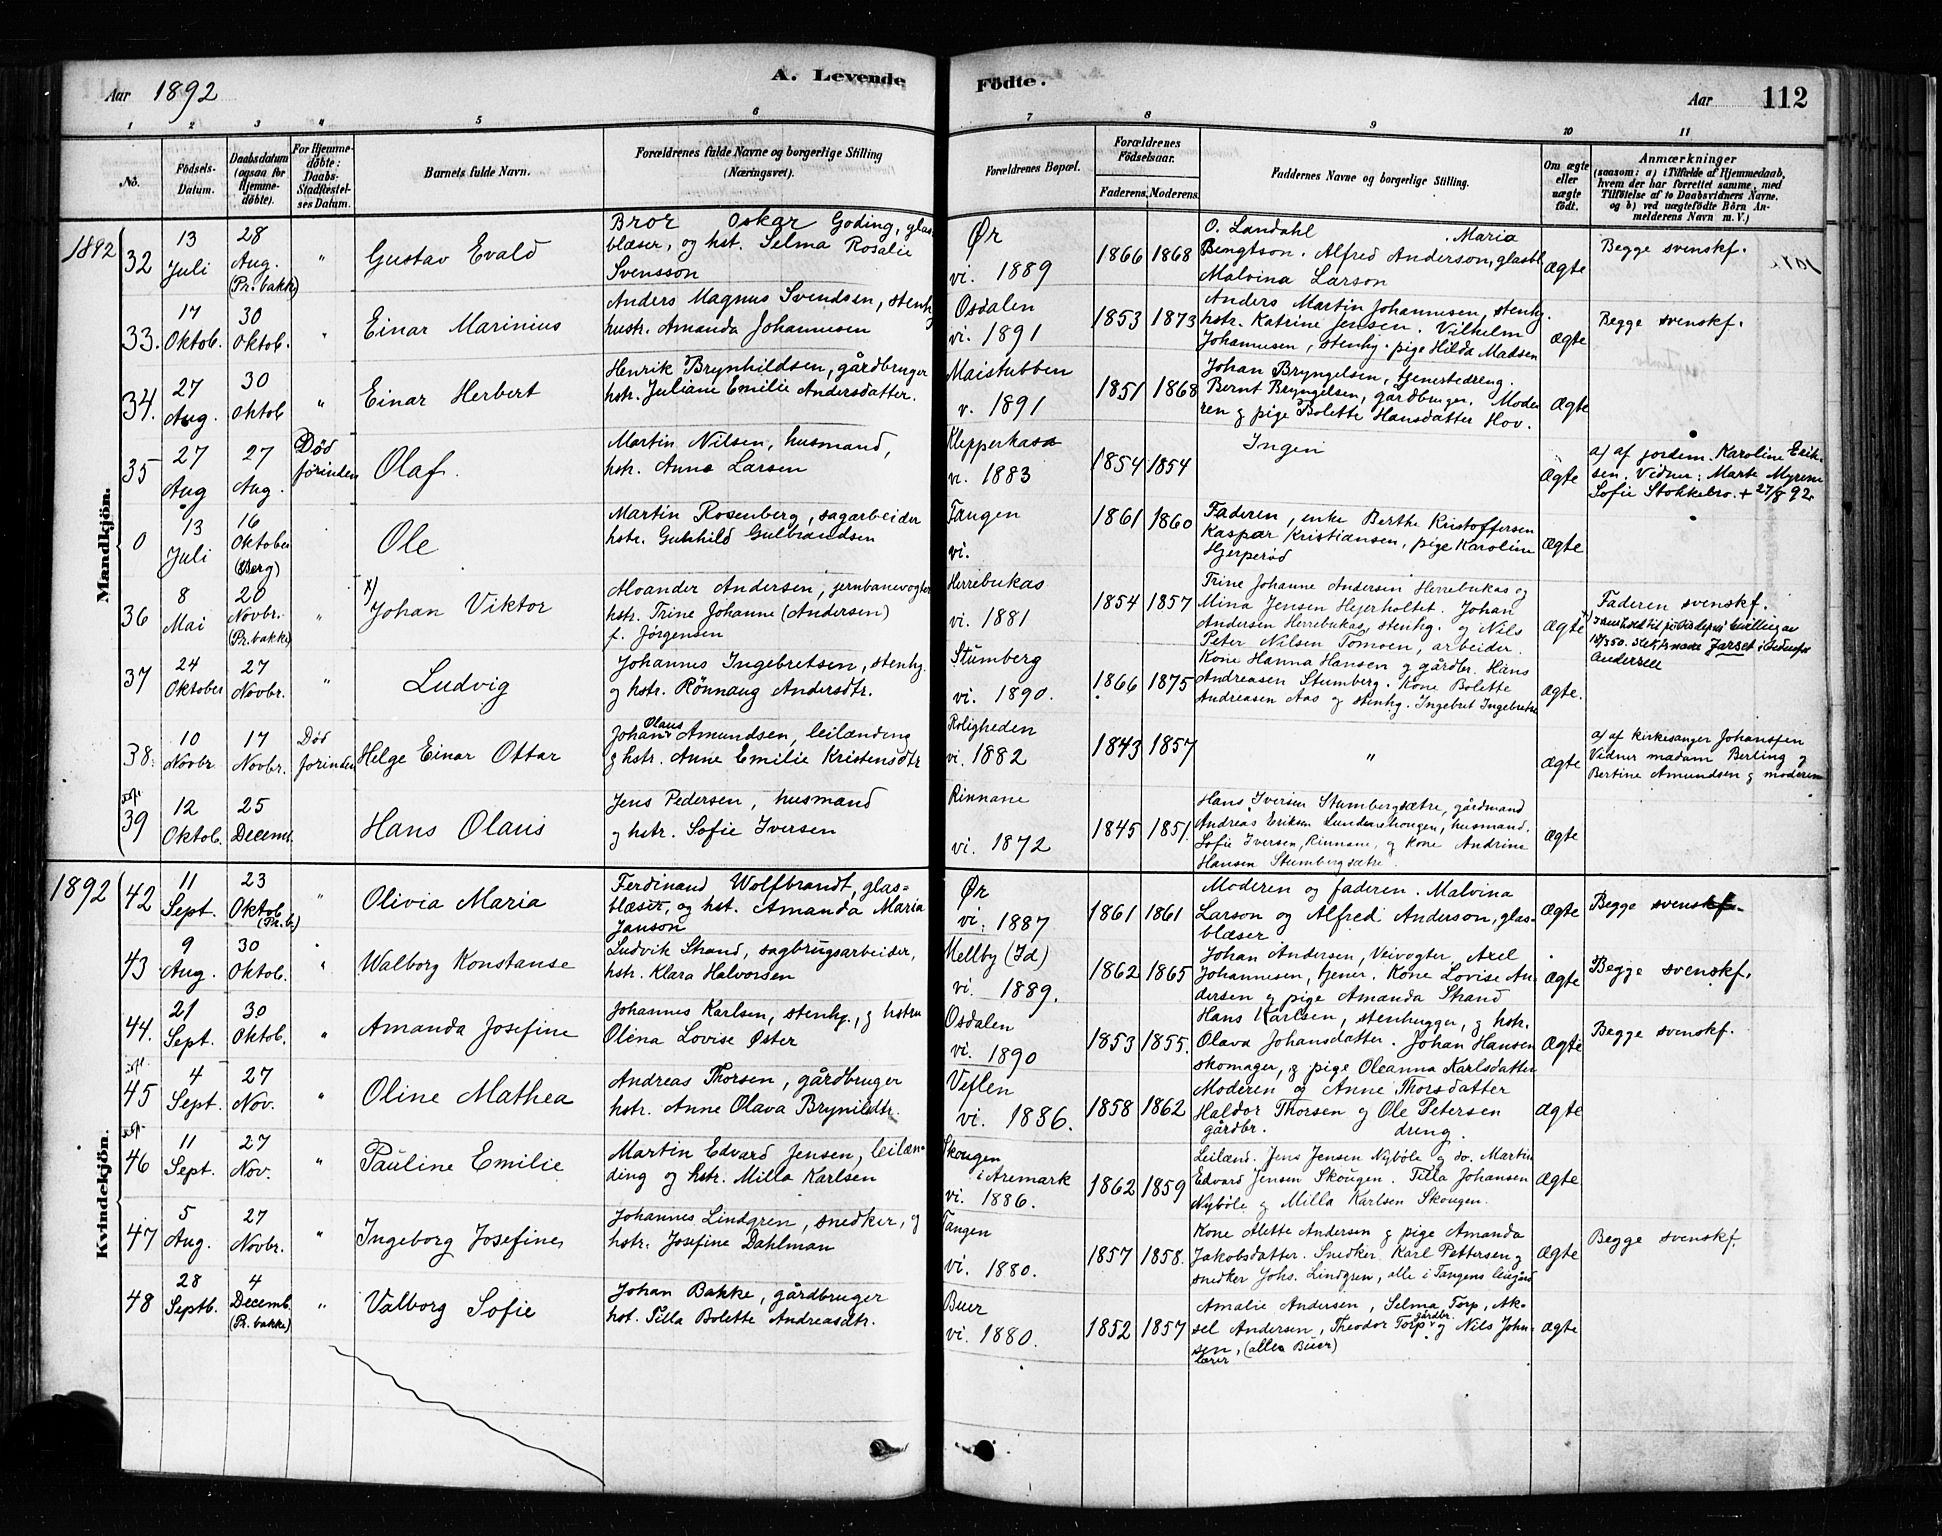 Aar 1892
A. Levende
Födte.
Aar 112
1 2 3 4 5 6 7 8 9 10 11
No.
Födsels-Datum.
Daabsdatum (ogsaa for Hjemmedöbte).
For Hjemmedöbte: Daabs-Stadfæstelses Datum.
Barnets fulde Navn.
Forældrenes fulde Navne og borgerlige Stilling (Næringsvei).
Forældrenes Bopæl.
Forældrenes Födselsaar.
Faderens. Moderens.
Faddernes Navne og borgerlige Stilling.
Om ægte eller uægte födt.
Anmærkninger
(saasom: a) i Tilfælde af Hjemmedaab, hvem der har forrettet samme, med Tilföielse af to Daabsvidners Navne. og b) ved uægtefödte Börn Anmelderens Navn m. V.)
Mandkjön.
1892 32 13 Juli 28 Aug. (Pr. bakke) " Gustav Evald
Bror Oskar Goding, glasblæser, og hst. Selma Rosalie Svensson
Ør vi. 1889 1866 1868
O. Landahl . Maria Bengtson. Alfred Anderson, glasbl. Malvina Larson
Ægte Begge svenskf.
33. 17 Oktob. 30 Oktob. " Einar Marinius
Anders Magnus Svendsen, stenh. hustr. Amanda Johannesen
Osdalen vi. 1891 1853 1873
Anders Martin Johannesen, stenhg. hstr. Katrine Jensen. Vilhelm Johannesen, stenhg. pige Hilda Madsen
Ægte Begge svenskf.
34. 27 Aug. 30 Oktob " Einar Herbert
Henrik Brynhildsen, gårdbruger hstr. Juliane Emilie Andersdatter.
Maistubben v. 1891 1851 1868
Johan Bryngelsen, tjenestedreng. Bernt Bryngelsen, gårdbruger. Moderen g pige Bolette Hansdatter Hov.
Ægte
35 27 Aug 27 Aug. Död forinden Olaf.
Martin Nilsen, husmand, hstr. Anne Larsen
Klepperkasa vi. 1883 1854 1854
Ingen
Ægte a) af jordem. Karoline Eriksen. Vidner: Marte Myrene Sofie Stokkebro. + 27/8 92.
0 13 Juli 16 Oktober (Berg) Ole
Martin Rosenberg, sagarbeider hstr. Gunhild Gulbrandsen
Tangen vi. 1861 1860
Faderen, enke Berthe Kristoffersen Kaspar Kristiansen, pige Karoline Hjerperød
Ægte
36 8 Mai 20 Novbr. (Pr. bakke) " x) Johan Viktor
Moander Andersen, jernbanevogter hstr. Trine Johanne (Andersen) f. Jørgensen
Herrebukas vi. 1881 1854 1857
Trine Johanne Andersen Herrebukas og Mina Jensen Hejerholtet. Johan Andersen Herrebukas, stenhg. og Nils Peter Nilsen Tomoen, arbeider.
Ægte Faderen svenskf.
Andersen
37 24 Oktober 27 Novbr. " Ludvig
Johannes Ingebretsen, stenhg. g hstr. Rönnaug Andersdtr.
Stumberg vi. 1890. 1866 1875
Kone Hanna Hansen g gårdbr. Hans Andreasen Stumberg. Kone Bolette Andreasen Aas g stenhg. Ingebret Ingebretsen
Ægte.
38. 10 Novbr 17 Novbr. Död forinden Helge Einar Ottar
Johan Olaus Amundsen, leilænding g hstr. Anne Emilie Kristensdtr
Roligheden vi. 1882 1843 1857
"
Ægte a) af kirkesanger Johanssen Vidner madam Berling g Bertine Amundsen g moderen
39 12 Oktob. 25 Decemb. Hans Olaus
Jens Pedersen, husmand g hstr. Sofie Iversen
Rinnane vi. 1872 1845 1851.
Hans Iversen Stumbergsætre, gårdmand Andreas Eriksen Lundenehougen, husmand. Sofie Iversen, Rinnane, g Kone Andrine Hansen Stumbergsætre.
Ægte
Kvindekjön.
1892 42 11 Sept. 23 Oktob. (Pr. b.) " Olivia Maria
Ferdinand Wolfbrandt, glasblæser, og hst. Amanda Maria Janson
Ør vi. 1887 1861 1861
Moderen og faderen. Malvina Larson og Alfred Anderson, glasblæser
Ægte Begge svenskf.
43 9 Aug. 30 Oktob. " Walborg Konstanse
Ludvik Strand, sagbrugsarbeider, hstr. Klara Halvorsen
Mellby (Id) vi. 1889. 1862 1865
Johan Andersen, Veivogter, Axel Johannesen, tjener. Kone Lovise Andersen g pige Amanda Strand
Ægte Begge svenskf.
44. 21 Sept. 30 Oktob. " Amanda Josefine
Johannes Karlsen, stenhg., g hstru Olena Lovise Øster
Osdalen vi. 1890 1853 1855.
Hans Karlsen, stenhugger, g hstr. Olava Johansdatter. Johan Hansen skomager, g pige Oleanna Karlsdatter
Ægte Begge svenskf.
45 4 Sept. 27 Nov. " Oline Mathea
Andreas Thorsen, gårdbruger hstr. Anne Olava Brynildtr.
Veflen vi. 1886. 1858 1862
Moderen og Anne Thorsdatter Haldor Thorsen g Ole Petersen gårdbr. dreng.
Ægte
46 11 Sept. 27 Nov. " Pauline Emilie
Martin Edvard Jensen, leilænding og hstr. Milla Karlsen
Skougen i Aremark vi. 1886. 1862 1859
Leilænd. Jens Jensen Nyböle g do. Martin Edvard Jensen Skougen. Tilla Johansen Nyböle g Milla Karlsen Skougen.
Ægte
47 5 Aug. 27 Novbr. " Ingeborg Josefine
Johannes Lindgren, snedker, g hstr. Josefine Dahlman
Tangen vi. 1880. 1857 1858.
Kone Alette Andersen g pige Amanda Jakobsdatter. Snedker Karl Pettersen g snedker Johs. Lindgren, alle i Tangens leiegård
Ægte Begge svenskf.
48 28 Septb. 4 Decemb. (Pr. bakke) " Valborg Sofie
Johan Bakke, gårdbruger hst. Tilla Bolette Andreasdtr.
Buer vi. 1880. 1852 1857
Amalie Andersen, Selma Torp, Aksel Andersen, Theodor Torp gårdbr. g Nils Johnsen, lærer (alle Buer)
Ægte